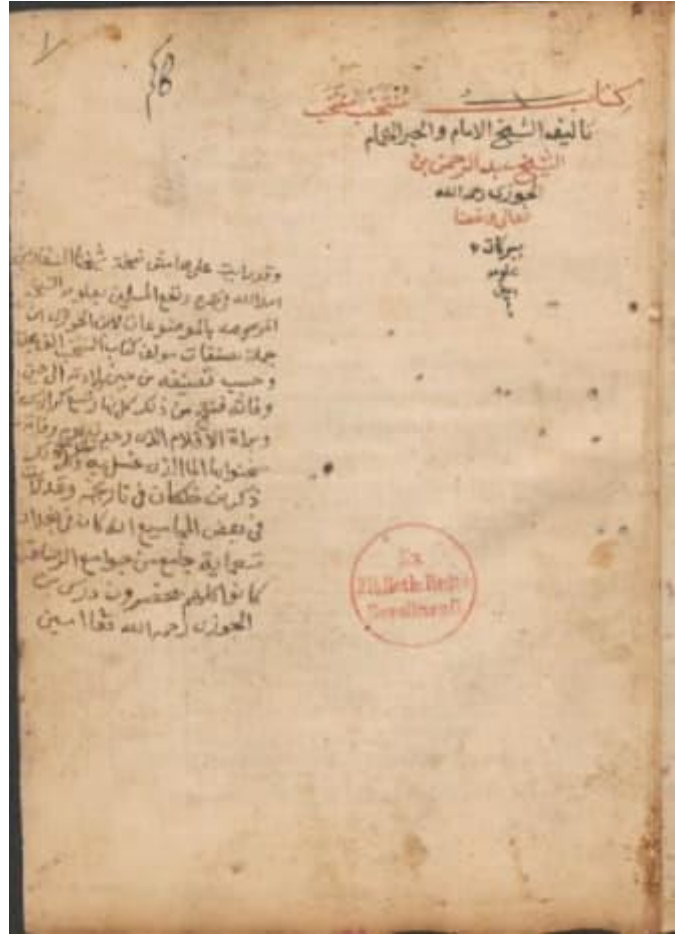 كتاب منتخب المنتخب
تاليف الشيخ الامام والحبر الهمام
الشيخ عبد الرحمن بن
الجوزي رحمه الله
تعالى ونفعنا
ببركاته
علومه
وقد رايت على هامش نسخة شيخنا السفاريني
امد الله في ونفع المسلمين بعلومه الشيخ
الموسومه بالموضوعات لابن الجوزي ان
جملة مصنفات مولف كتاب
وحسب تصنيفه من حين ولادته الى حين
وفاته من ذلك كل نهار تسع كراريس
وبراة الاقلام الذي وفاته
سخنوا بها الما الذي غسل به ذكر
ذكر بن خلكان في تاريخه وقد
في بعض المجاميع انه كان في بغداد
تسعماية جامع من جوامع
كانوا كلهم يحضرون درس بن
الجوزي رحمه الله تعا امين
Ex
Biblioth. Regia
Berolinensi